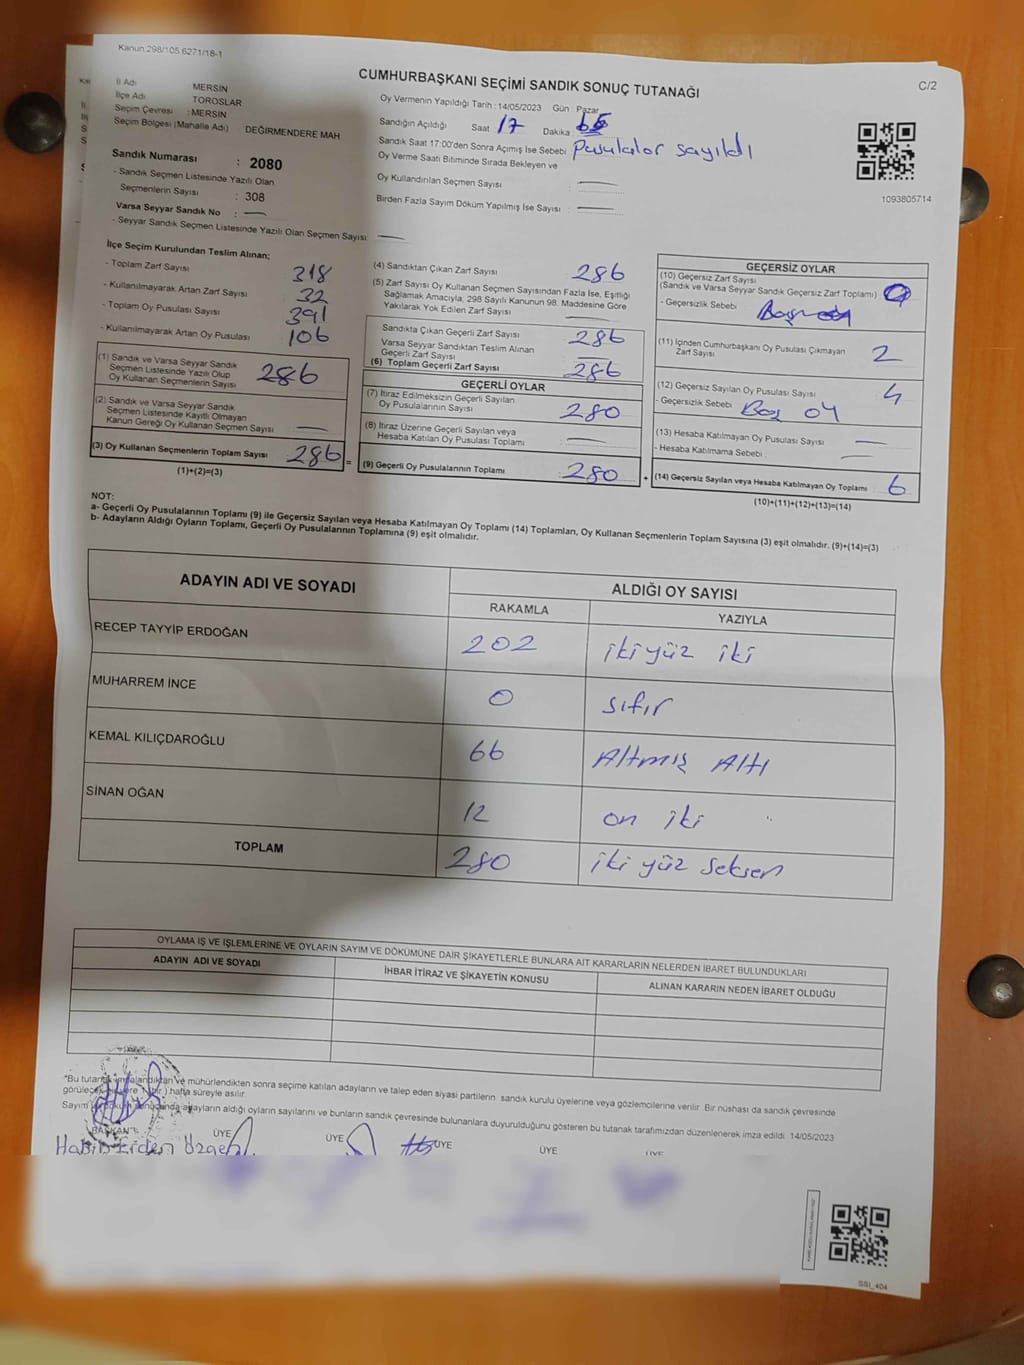 Kanun:298/105.6271/18-1
C/2
CUMHURBAŞKANI SEÇİMİ SANDIK SONUÇ TUTANAĞI
İl Adı MERSİN
İlçe Adı TOROSLAR
Seçim Çevresi : MERSİN
Seçim Bölgesi (Mahalle Adı) DEĞİRMENDERE MAH
Sandık Numarası : 2080
- Sandık Seçmen Listesinde Yazılı Olan
Seçmenlerin Sayısı : 308
Varsa Seyyar Sandık No : —
- Seyyar Sandık Seçmen Listesinde Yazılı Olan Seçmen Sayısı: —
Oy Vermenin Yapıldığı Tarih : 14/05/2023 Gün : Pazar
Sandığın Açıldığı Saat 17 Dakika
Sandık Saat 17:00'den Sonra Açımış İse Sebebi Pusulalar sayıldı
Oy Verme Saati Bitiminde Sırada Bekleyen ve
Oy Kullandırılan Seçmen Sayısı : —
Birden Fazla Sayım Döküm Yapılmış İse Sayısı : —
1093805714
İlçe Seçim Kurulundan Teslim Alınan;
- Toplam Zarf Sayısı 318
- Kullanılmayarak Artan Zarf Sayısı 32
- Toplam Oy Pusulası Sayısı 391
- Kullanılmayarak Artan Oy Pusulası : 106
(1) Sandık ve Varsa Seyyar Sandık
Seçmen Listesinde Yazılı Olup
Oy Kullanan Seçmenlerin Sayısı 286
(2) Sandık ve Varsa Seyyar Sandık
Seçmen Listesinde Kayıtlı Olmayan
Kanun Gereği Oy Kullanan Seçmen Sayısı —
(3) Oy Kullanan Seçmenlerin Toplam Sayısı 286 =
(1)+(2)=(3)
(4) Sandıktan Çıkan Zarf Sayısı 286
(5) Zarf Sayısı Oy Kullanan Seçmen Sayısından Fazla İse, Eşitliği
Sağlamak Amacıyla, 298 Sayılı Kanunun 98. Maddesine Göre
Yakılarak Yok Edilen Zarf Sayısı —
Sandıkta Çıkan Geçerli Zarf Sayısı 286
Varsa Seyyar Sandıktan Teslim Alınan
Geçerli Zarf Sayısı —
(6) Toplam Geçerli Zarf Sayısı 286
GEÇERLİ OYLAR
(7) İtiraz Edilmeksizin Geçerli Sayılan
Oy Pusulalarının Sayısı 280
(8) İtiraz Üzerine Geçerli Sayılan veya
Hesaba Katılan Oy Pusulası Toplamı —
(9) Geçerli Oy Pusulalarının Toplamı : 280 +
GEÇERSİZ OYLAR
(10) Geçersiz Zarf Sayısı
(Sandık ve Varsa Seyyar Sandık Geçersiz Zarf Toplamı)
- Geçersizlik Sebebi
(11) İçinden Cumhurbaşkanı Oy Pusulası Çıkmayan
Zarf Sayısı 2
(12) Geçersiz Sayılan Oy Pusulası Sayısı 4
- Geçersizlik Sebebi Boş oy
(13) Hesaba Katılmayan Oy Pusulası Sayısı —
- Hesaba Katılmama Sebebi : —
(14) Geçersiz Sayılan veya Hesaba Katılmayan Oy Toplamı : 6
(10)+(11)+(12)+(13)=(14)
NOT:
a- Geçerli Oy Pusulalarının Toplamı (9) ile Geçersiz Sayılan veya Hesaba Katılmayan Oy Toplamı (14) Toplamları, Oy Kullanan Seçmenlerin Toplam Sayısına (3) eşit olmalıdır. (9)+(14)=(3)
b- Adayların Aldığı Oyların Toplamı, Geçerli Oy Pusulalarının Toplamına (9) eşit olmalıdır.
ADAYIN ADI VE SOYADI ALDIĞI OY SAYISI
RAKAMLA YAZIYLA
RECEP TAYYİP ERDOĞAN 202 iki yüz iki
MUHARREM İNCE 0 sıfır
KEMAL KILIÇDAROĞLU 66 Altmış Altı
SİNAN OĞAN 12 on iki
TOPLAM 280 iki yüz seksen
OYLAMA İŞ VE İŞLEMLERİNE VE OYLARIN SAYIM VE DÖKÜMÜNE DAİR ŞİKAYETLERLE BUNLARA AİT KARARLARIN NELERDEN İBARET BULUNDUKLARI
ADAYIN ADI VE SOYADI İHBAR İTİRAZ VE ŞİKAYETİN KONUSU ALINAN KARARIN NEDEN İBARET OLDUĞU
*Bu tutanak imzalandıktan ve mühürlendikten sonra seçime katılan adayların ve talep eden siyasi partilerin sandık kurulu üyelerine veya gözlemcilerine verilir. Bir nüshası da sandık çevresinde
görülecek bir yere 1 (bir) hafta süreyle asılır.
Sayım dökümü sonucunda adayların aldığı oyların sayılarını ve bunların sandık çevresinde bulunanlara duyurulduğunu gösteren bu tutanak tarafımızdan düzenlenerek imza edildi. 14/05/2023
BAŞKAN ÜYE ÜYE ÜYE ÜYE ÜYE
Habib Erdem
SSI_404